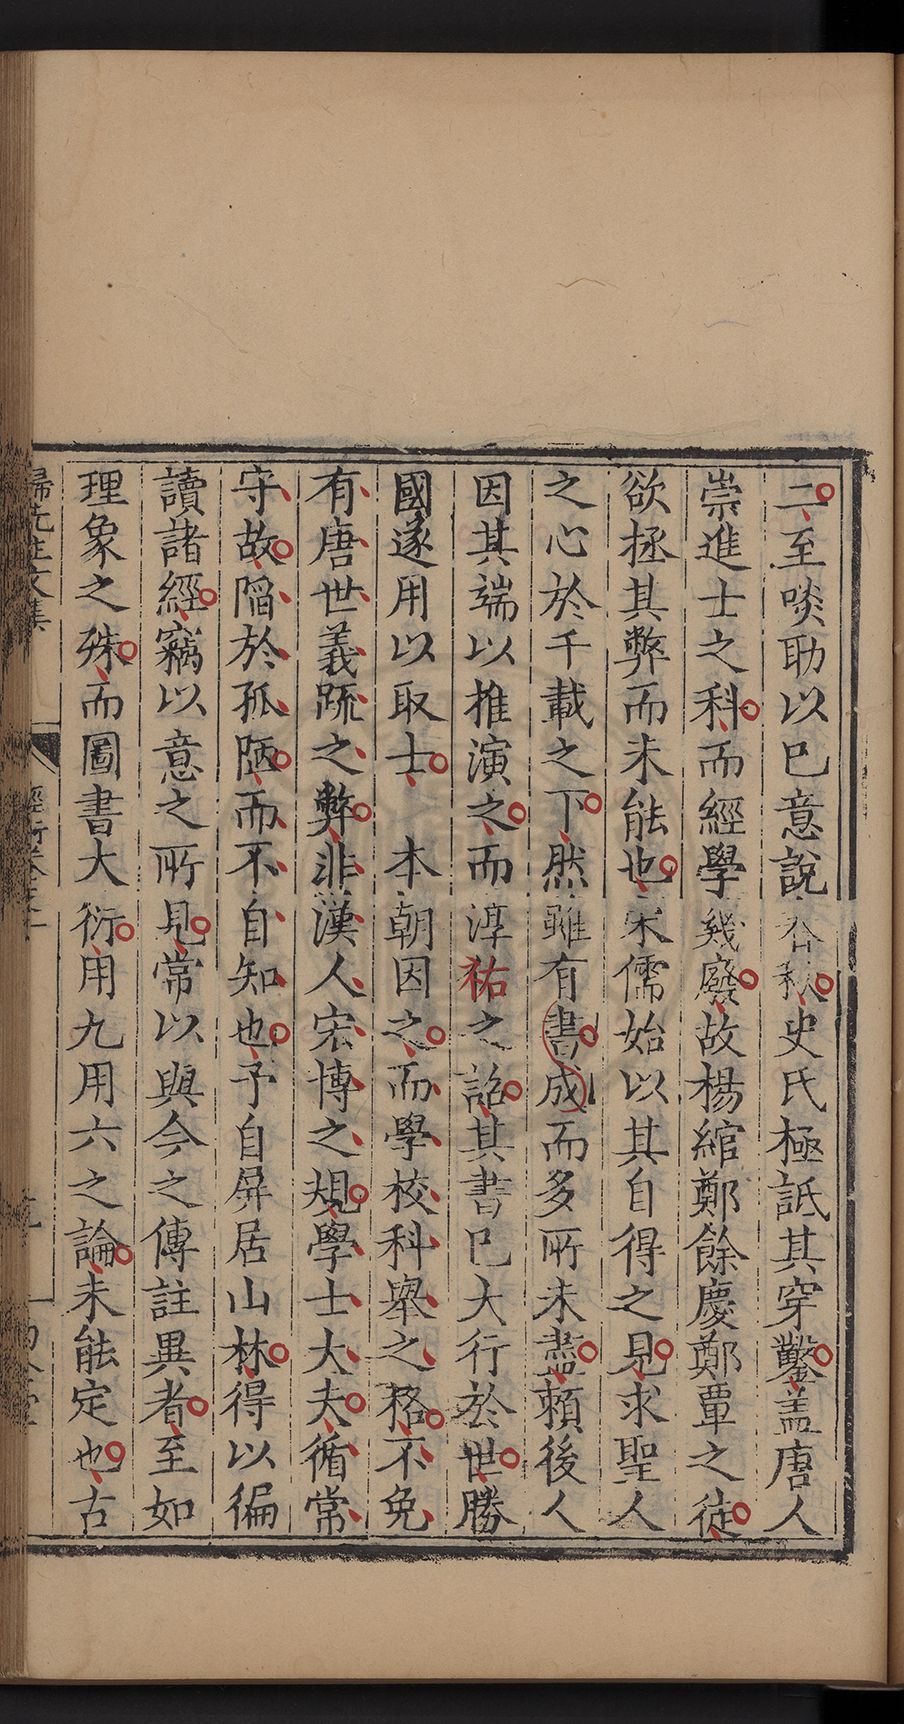 二至啖助以已意說春秋史氏極詆其穿鑿盖唐人
崇進士之科而經學幾廢故楊綰鄭餘慶鄭覃之徒
欲拯其弊而未能也宋儒始以其自得之見求聖人
之心於千載之下然雖有書成而多所未盡賴後人
因其端以推演之而淳祐之詔其書已大行於世勝
國遂用以取士　本朝因之而學校科舉之格不免
有唐世義疏之弊非漢人宏博之規學士大夫循常
守故陷於孤陋而不自知也予自屏居山林得以徧
讀諸經竊以意之所見常以與今之傳註異者至如
理象之殊而圖書大衍用九用六之論未能定也古
歸先生文集